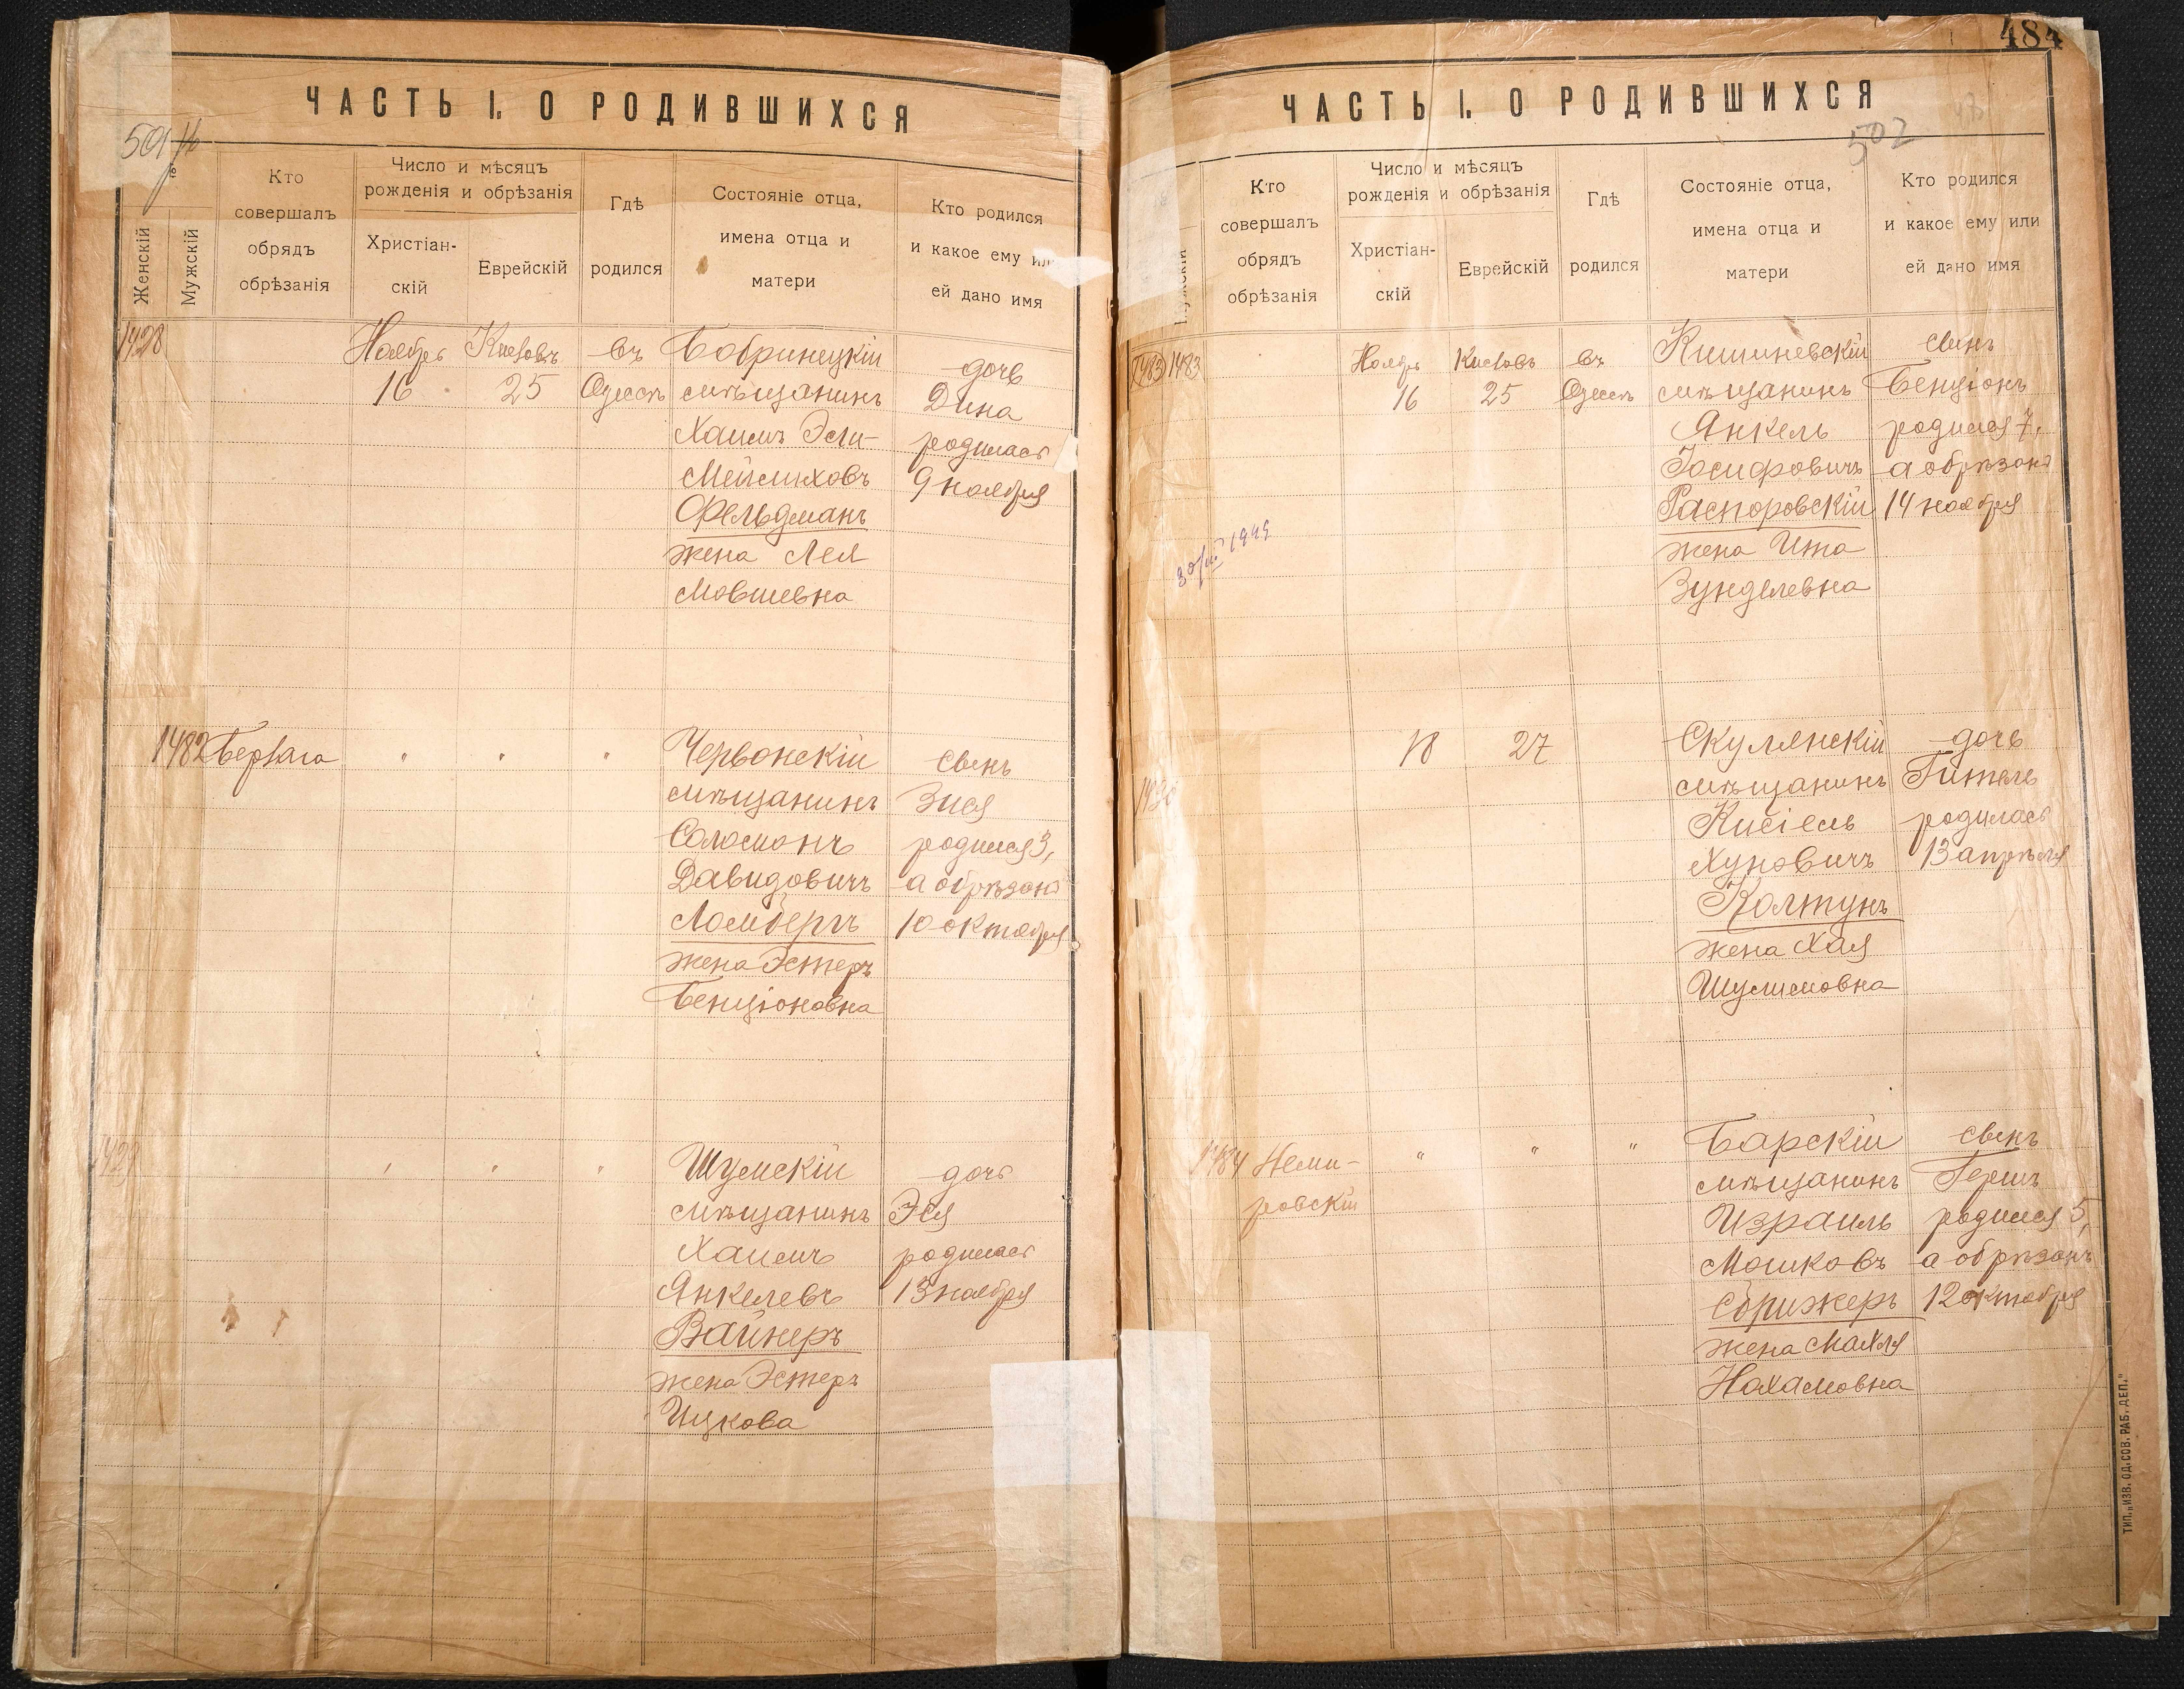 ЧАСТЬ I. О РОДИВШИХСЯ
501
№
Женскій
Мужскій
Кто
совершалъ
обрядъ
обрѣзанія
Число и мѣсяцъ
рожденія и обрѣзанія
Христіан-
скій
Еврейскій
Гдѣ
родился
Состояніе отца,
имена отца и
матери
Кто родился
и какое ему или
ей дано имя
1428
Ноябрь
16
Кислевъ
25
въ
Одессѣ
Бобринецкій
мѣщанинъ
Хаимъ Эли-
Мейлиховъ
Фельдманъ
жена Лея
Мовшевна
дочь
Дина
родилась
9 ноября
1482
"
"
"
Червонскій
мѣщанинъ
Соломонъ
Давидовичъ
Ломбергъ
жена Эстеръ
Бенціоновна
сынъ
Зися
родился 3,
а обрѣзанъ
10 октября
1429
"
"
"
Шумскій
мѣщанинъ
Хаимъ
Янкелевъ
Вайнеръ
жена Эстеръ
Ицкова
дочь
Эся
родилась
13 ноября
484
ЧАСТЬ I. О РОДИВШИХСЯ
502
Кто
совершалъ
обрядъ
обрѣзанія
Число и мѣсяцъ
рожденія и обрѣзанія
Христіан-
скій
Еврейскій
Гдѣ
родился
Состояніе отца,
имена отца и
матери
Кто родился
и какое ему или
ей дано имя
1483 1483
Ноябрь
16
Кислевъ
25
въ
Одессѣ
Кишиневскій
мѣщанинъ
Янкель
Іосифовичъ
Распоровскій
жена Ита
Зунделевна
сынъ
Бенціонъ
родился 7,
а обрѣзанъ
14 ноября
30/III 1945
1430
18
27
Скулянскій
мѣщанинъ
Кисіель
Хуновичъ
Колтунъ
жена Хая
Шулимовна
дочь
Гитель
родилась
13 апрѣля
1484
Неми-
ровскій
"
"
"
Барскій
мѣщанинъ
Израиль
Мошковъ
Сбрижеръ
жена Махля
Нохамовна
сынъ
Гершъ
родился 5,
а обрѣзанъ
12 октября
ТИП. „ИЗВ. ОД. СОВ. РАБ. ДЕП."